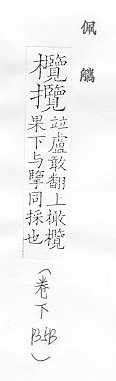 佩觿
欖攬
竝盧敢翻上橄欖
果下与擥同採也
(卷下)